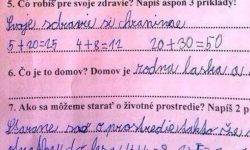 5. Čo robíš pre svoje zdravie? Napíš aspoň 3 príklady!
Svoje zdravie si chránime
5+20=25 4+8=12 20+30=50
6. Čo je to domov? Domov je rodna laska a
7. Ako sa môžeme starať o životné prostredie? Napíš 2 p
Starame sa o prostredie takto že